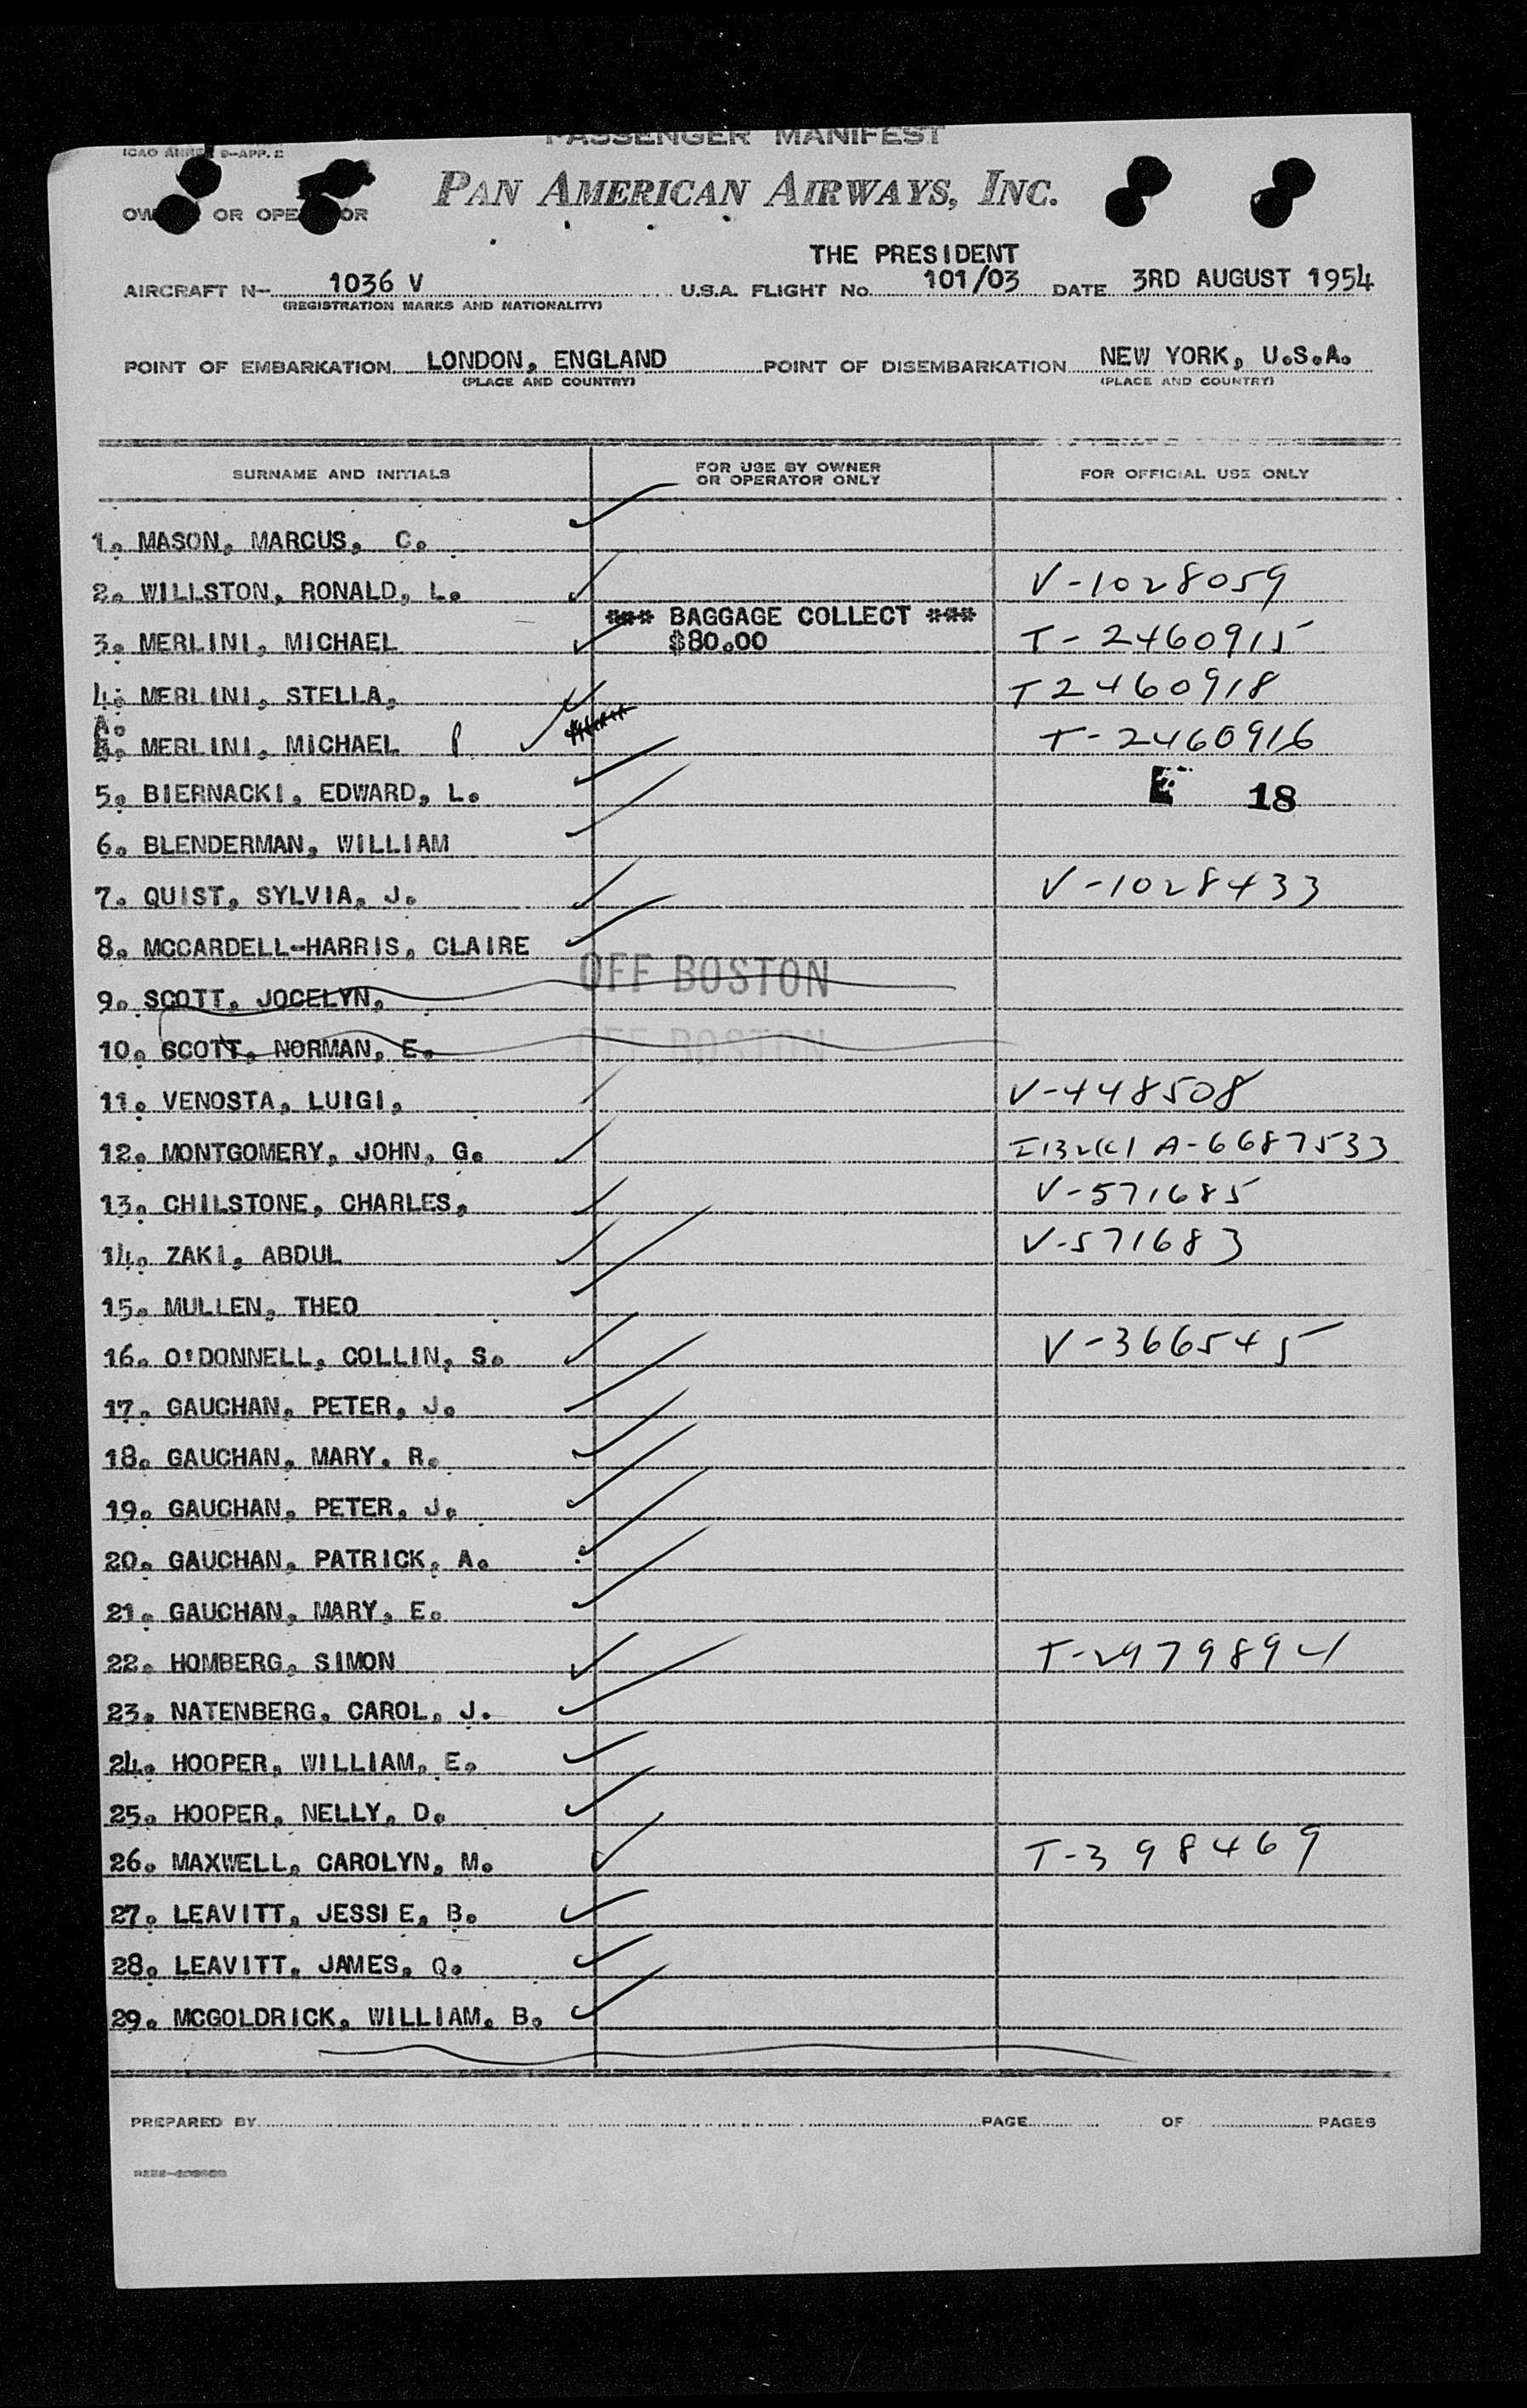 PASSENGER MANIFEST
ICAO ANNEX 9-APP. 2
PAN AMERICAN AIRWAYS, INC.
OR
THE PRESIDENT
AIRCRAFT N- 1036 V U.S.A. FLIGHT No. 101/03 DATE 3RD AUGUST 1954
(REGISTRATION MARKS AND NATIONALITY)
POINT OF EMBARKATION LONDON, ENGLAND POINT OF DISEMBARKATION NEW YORK, U.S.A.
(PLACE AND COUNTRY) (PLACE AND COUNTRY)
SURNAME AND INITIALS FOR USE BY OWNER OR OPERATOR ONLY FOR OFFICIAL USE ONLY
1. MASON, MARCUS, C.
2. WILLSTON, RONALD, L. V-1028059
*** BAGGAGE COLLECT ***
3. MERLINI, MICHAEL $80.00 T-2460915
4. MERLINI, STELLA, T2460918
A.
MERLINI, MICHAEL T-2460916
5. BIERNACKI, EDWARD, L. E 18
6. BLENDERMAN, WILLIAM
7. QUIST, SYLVIA, J. V-1028433
8. MCCARDELL-HARRIS, CLAIRE
OFF BOSTON
9. SCOTT, JOCELYN,
10. SCOTT, NORMAN, E. OFF BOSTON
11. VENOSTA, LUIGI, V-448508
12. MONTGOMERY, JOHN, G. A-6687533
13. CHILSTONE, CHARLES, V-571685
14. ZAKI, ABDUL V-571683
15. MULLEN, THEO
16. O'DONNELL, COLLIN, S. V-366545
17. GAUCHAN, PETER, J.
18. GAUCHAN, MARY, R.
19. GAUCHAN, PETER, J.
20. GAUCHAN, PATRICK, A.
21. GAUCHAN, MARY, E.
22. HOMBERG, SIMON T-2979894
23. NATENBERG, CAROL, J.
24. HOOPER, WILLIAM, E.
25. HOOPER, NELLY, D.
26. MAXWELL, CAROLYN, M. T-398469
27. LEAVITT, JESSIE, B.
28. LEAVITT, JAMES, Q.
29. MCGOLDRICK, WILLIAM, B.
PREPARED BY PAGE OF PAGES